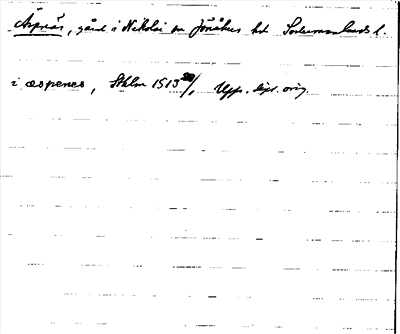 Äspnäs, gård i Nikolai sn Jönåkers hd Södermanlands l.
i æspenes, Sthlm 1513 20/1 Upps. dipl. orig.